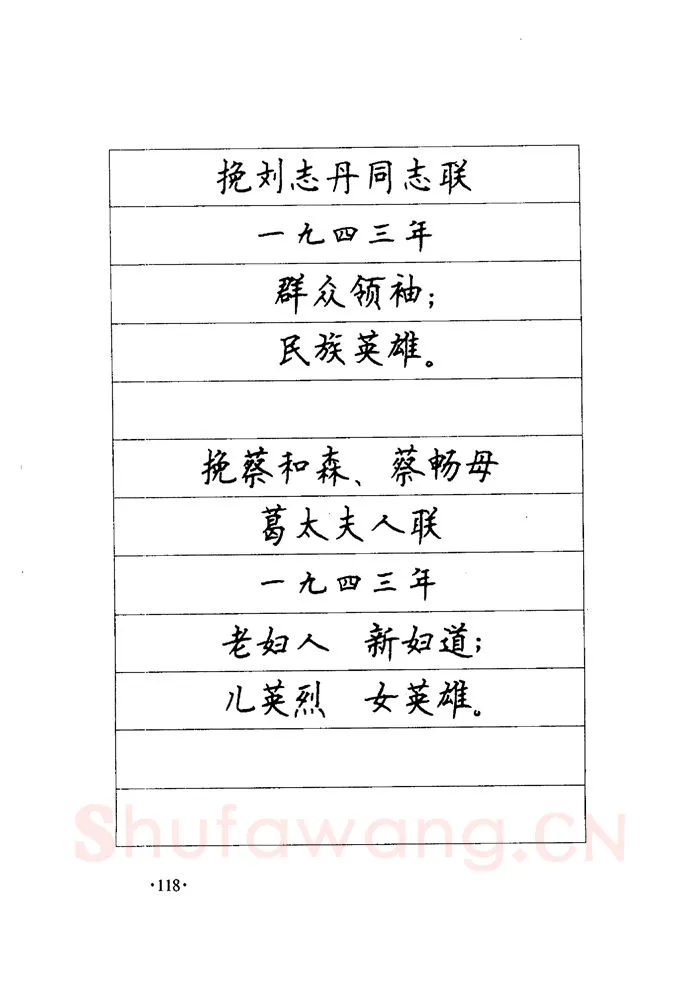 挽刘志丹同志联
一九四三年
群众领袖；
民族英雄。
挽蔡和森、蔡畅母
葛太夫人联
一九四三年
老妇人 新妇道；
儿英烈 女英雄。
Shufawang.CN
·118·